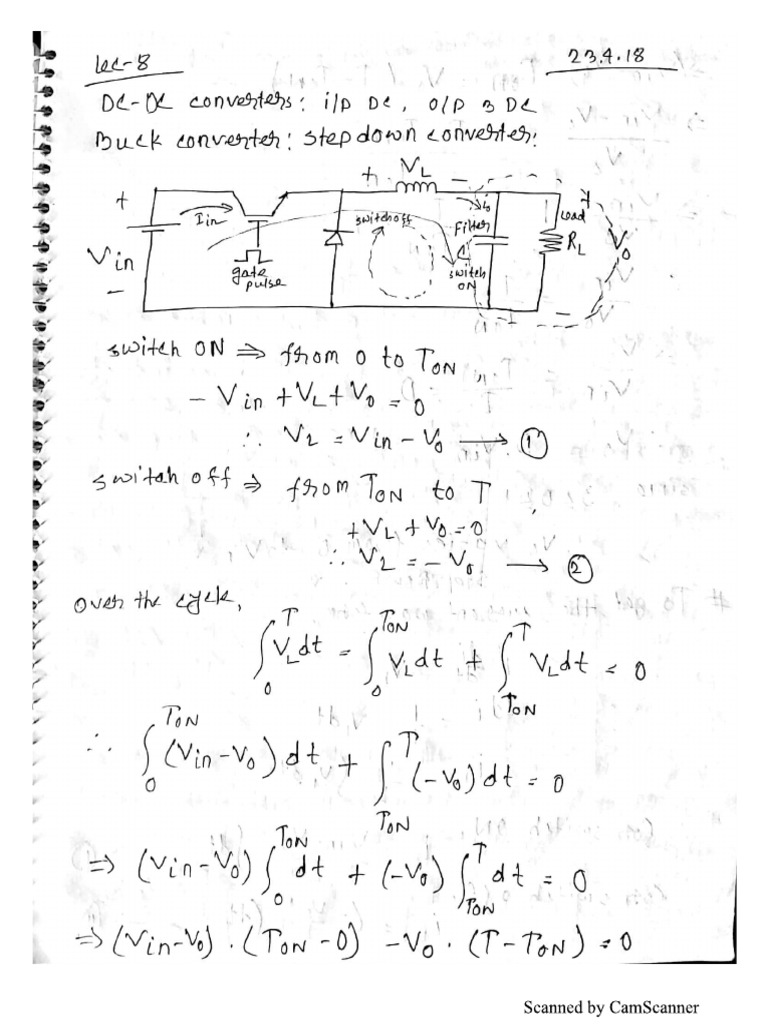 Lec-8
23.4.18
DC-DC converters: i/p DC, o/p ও DC
Buck converter: step down converter:
+ V_L −
+ I_in switch off i_0 Filter Load R_L + V_0
V_in gate pulse switch ON
− −
switch ON ⇒ from 0 to T_ON
− V_in + V_L + V_0 = 0
∴ V_L = V_in − V_0 ⟶ ①
switch off ⇒ from T_ON to T
+V_L + V_0 = 0
∴ V_L = − V_0 ⟶ ②
over the cycle,
∫_0^T V_L dt = ∫_0^{T_ON} V_L dt + ∫_{T_ON}^T V_L dt = 0
∴ ∫_0^{T_ON} (V_in − V_0) dt + ∫_{T_ON}^T (−V_0) dt = 0
⇒ (V_in − V_0) ∫_0^{T_ON} dt + (−V_0) ∫_{T_ON}^T dt = 0
⇒ (V_in − V_0) · (T_ON − 0) − V_0 · (T − T_ON) = 0
Scanned by CamScanner